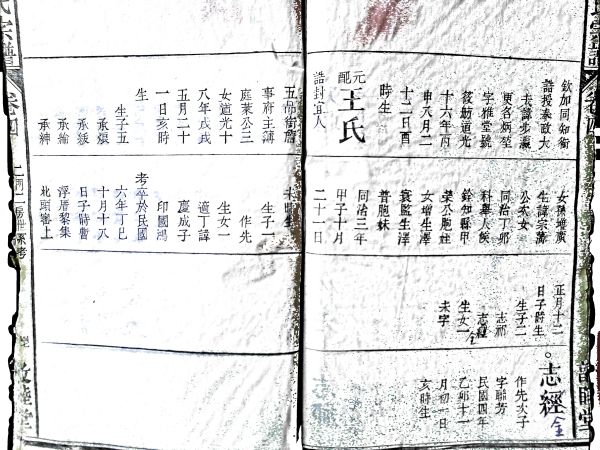 欽加同知銜
誥授奉政大
夫諱步瀛
更名炳堃
字雅堂號
筱舫道光
十六年丙
申八月二
十二日酉
時生
元配王氏
誥封宜人
五品銜詹
事府主薄
庭葉公三
女道光十
八年戊戌
五月二十
一日亥時
生
生子五
承煥
承綸
承紳
女孫增廣
生諱宗濂
公次女
同治丁卯
科舉人候
銓知縣甲
榮公胞姪
女增生澤
寰監生澤
普胞妹
同治三年
甲子十月
二十一日
生子二
作先
生女一
適丁諱
慶成子
印國鴻
考卒於民國
六年丁巳
十月十八
日子時暫
浮厝黎集
北頭寨上
正月十二
日子時生
生子二
志祁
志經
生女二
未字
志經
作先次子
字聯芳
民國四年
乙卯十一
月初一日
亥時生
氏宗譜
卷四
敦睦堂